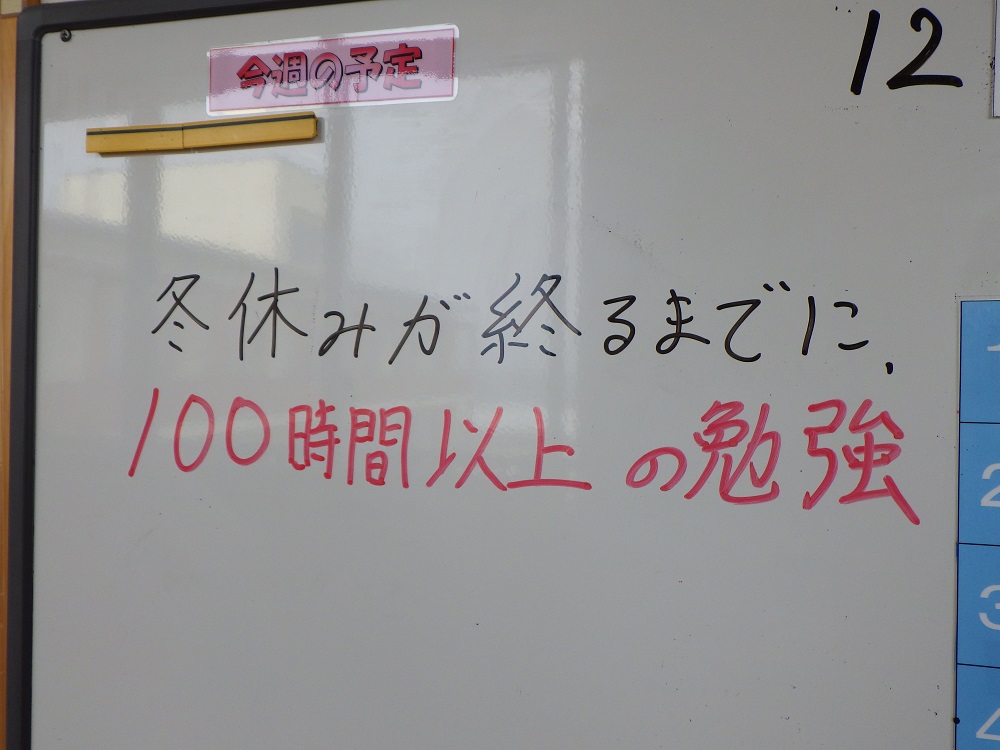 今週の予定
12
冬休みが終るまでに,
100時間以上の勉強
1
2
3
4